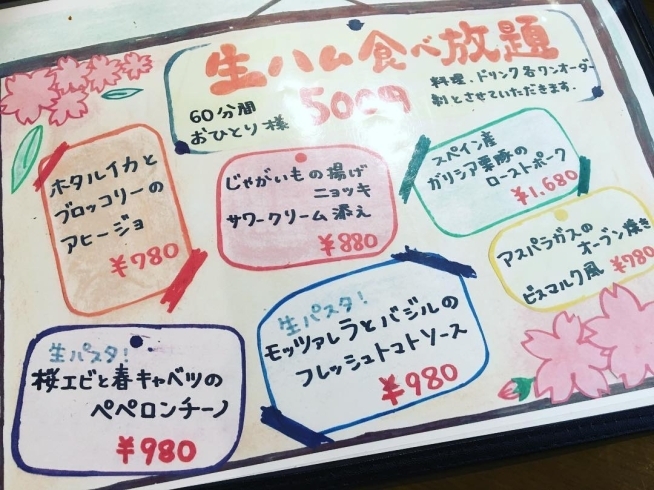 生ハム食べ放題
60分間
おひとり様
500円
料理、ドリンク各ワンオーダー
制とさせていただきます.
ホタルイカと
ブロッコリーの
アヒージョ
¥780
じゃがいもの揚げ
ニョッキ
サワークリーム添え
¥880
スペイン産
ガリシア栗豚の
ローストポーク
¥1,680
アスパラガスの
オーブン焼き
ビスマルク風
¥780
生パスタ!
桜エビと春キャベツの
ペペロンチーノ
¥980
生パスタ!
モッツァレラとバジルの
フレッシュトマトソース
¥980